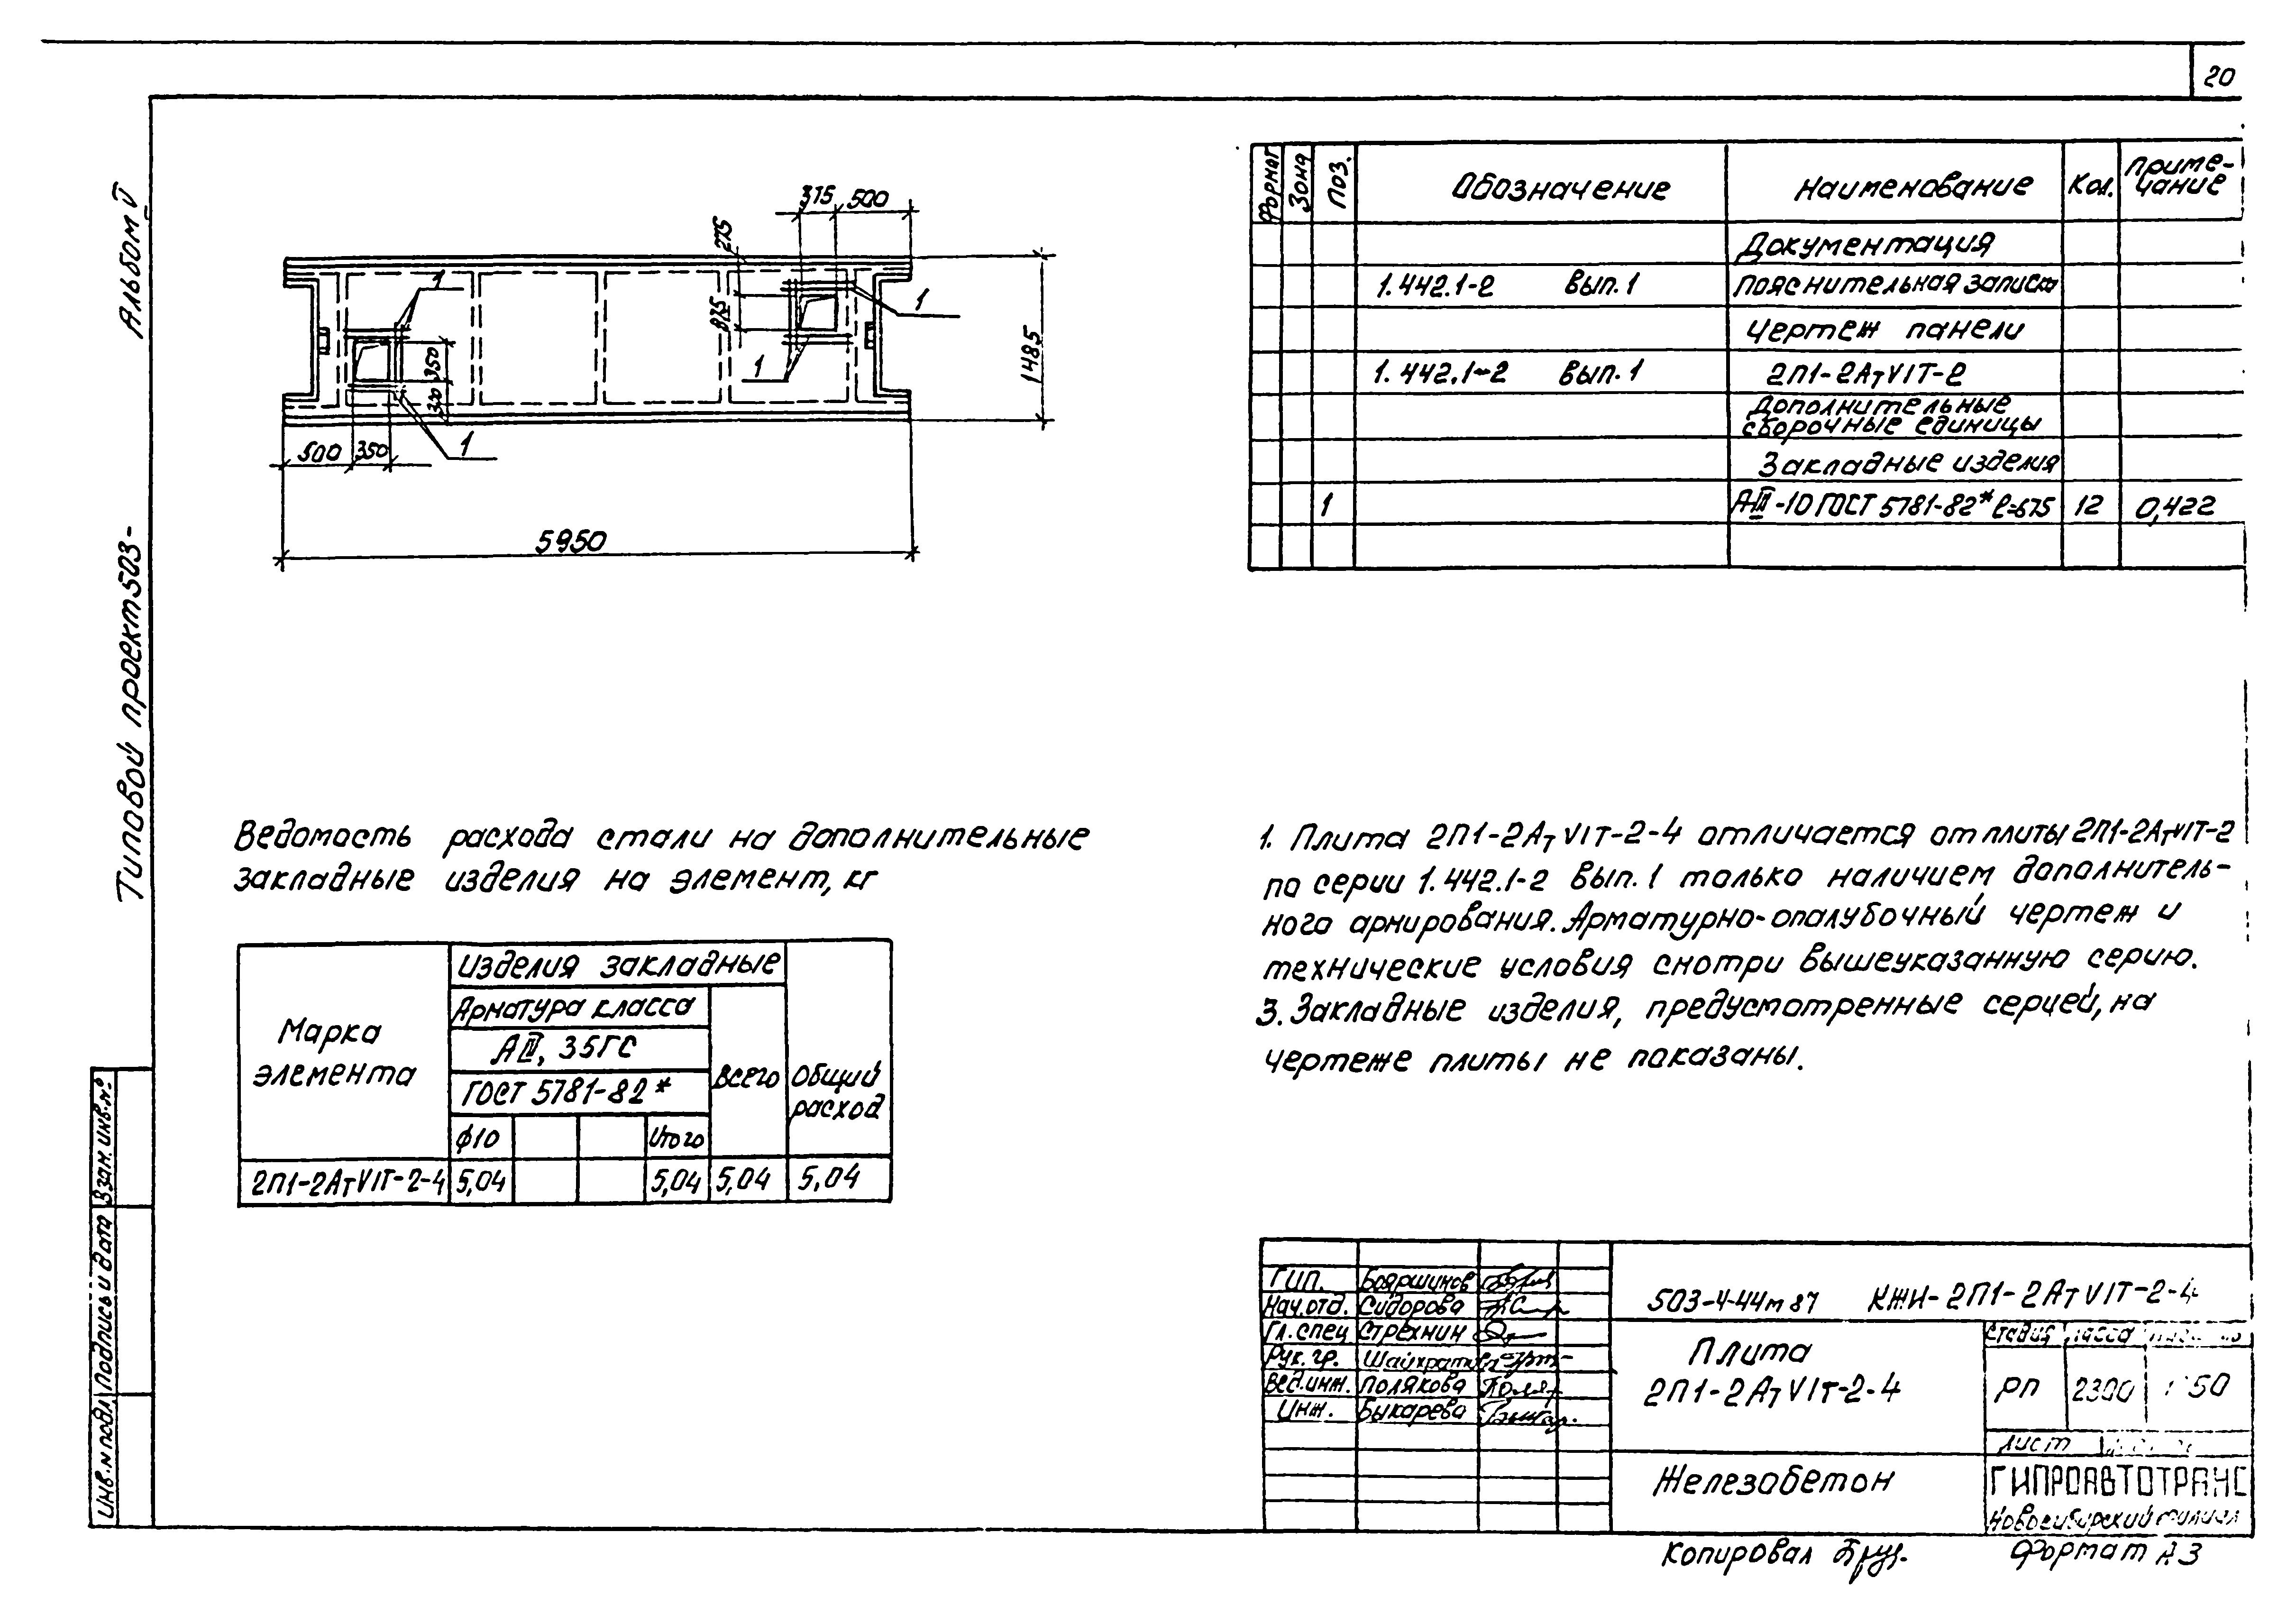 20
Альбом V
Типовой проект 503-
Взам. инв.№
Подпись и дата
Инв.№ подл.
375 500
275
375
1
1
1
1
350
320
500 350
1485
5950
Формат Зона Поз. Обозначение Наименование Кол. Приме-
чание
Документация
1.442.1-2 Вып.1 Пояснительная записка
Чертеж панели
1.442.1-2 Вып.1 2П1-2АтVIТ-2
Дополнительные
сборочные единицы
Закладные изделия
1 АIII-10 ГОСТ 5781-82* ℓ=675 12 0,422
Ведомость расхода стали на дополнительные
закладные изделия на элемент, кг
Марка
элемента
Изделия закладные
Арматура класса
АIII, 35ГС
ГОСТ 5781-82*
Всего
Общий
расход
ф10 Итого
2П1-2АтVIТ-2-4 5,04 5,04 5,04 5,04
1. Плита 2П1-2АтVIТ-2-4 отличается от плиты 2П1-2АтVIТ-2
по серии 1.442.1-2 Вып.1 только наличием дополнитель-
ного армирования. Арматурно-опалубочный чертеж и
технические условия смотри вышеуказанную серию.
3. Закладные изделия, предусмотренные серией, на
чертеже плиты не показаны.
ГИП. Бояршинов
Нач.отд. Сидорова
Гл.спец Стрехнин
Рук.гр.
Вед.инж. Полякова
Инж. Быкарева
503-4-44м 87 КЖИ-2П1-2АтVIТ-2-4
Плита
2П1-2АтVIТ-2-4
Стадия Масса
РП 2300 1:50
Лист
Железобетон
ГИПРОАВТОТРАНС
Новосибирский филиал
Копировал
Формат А3